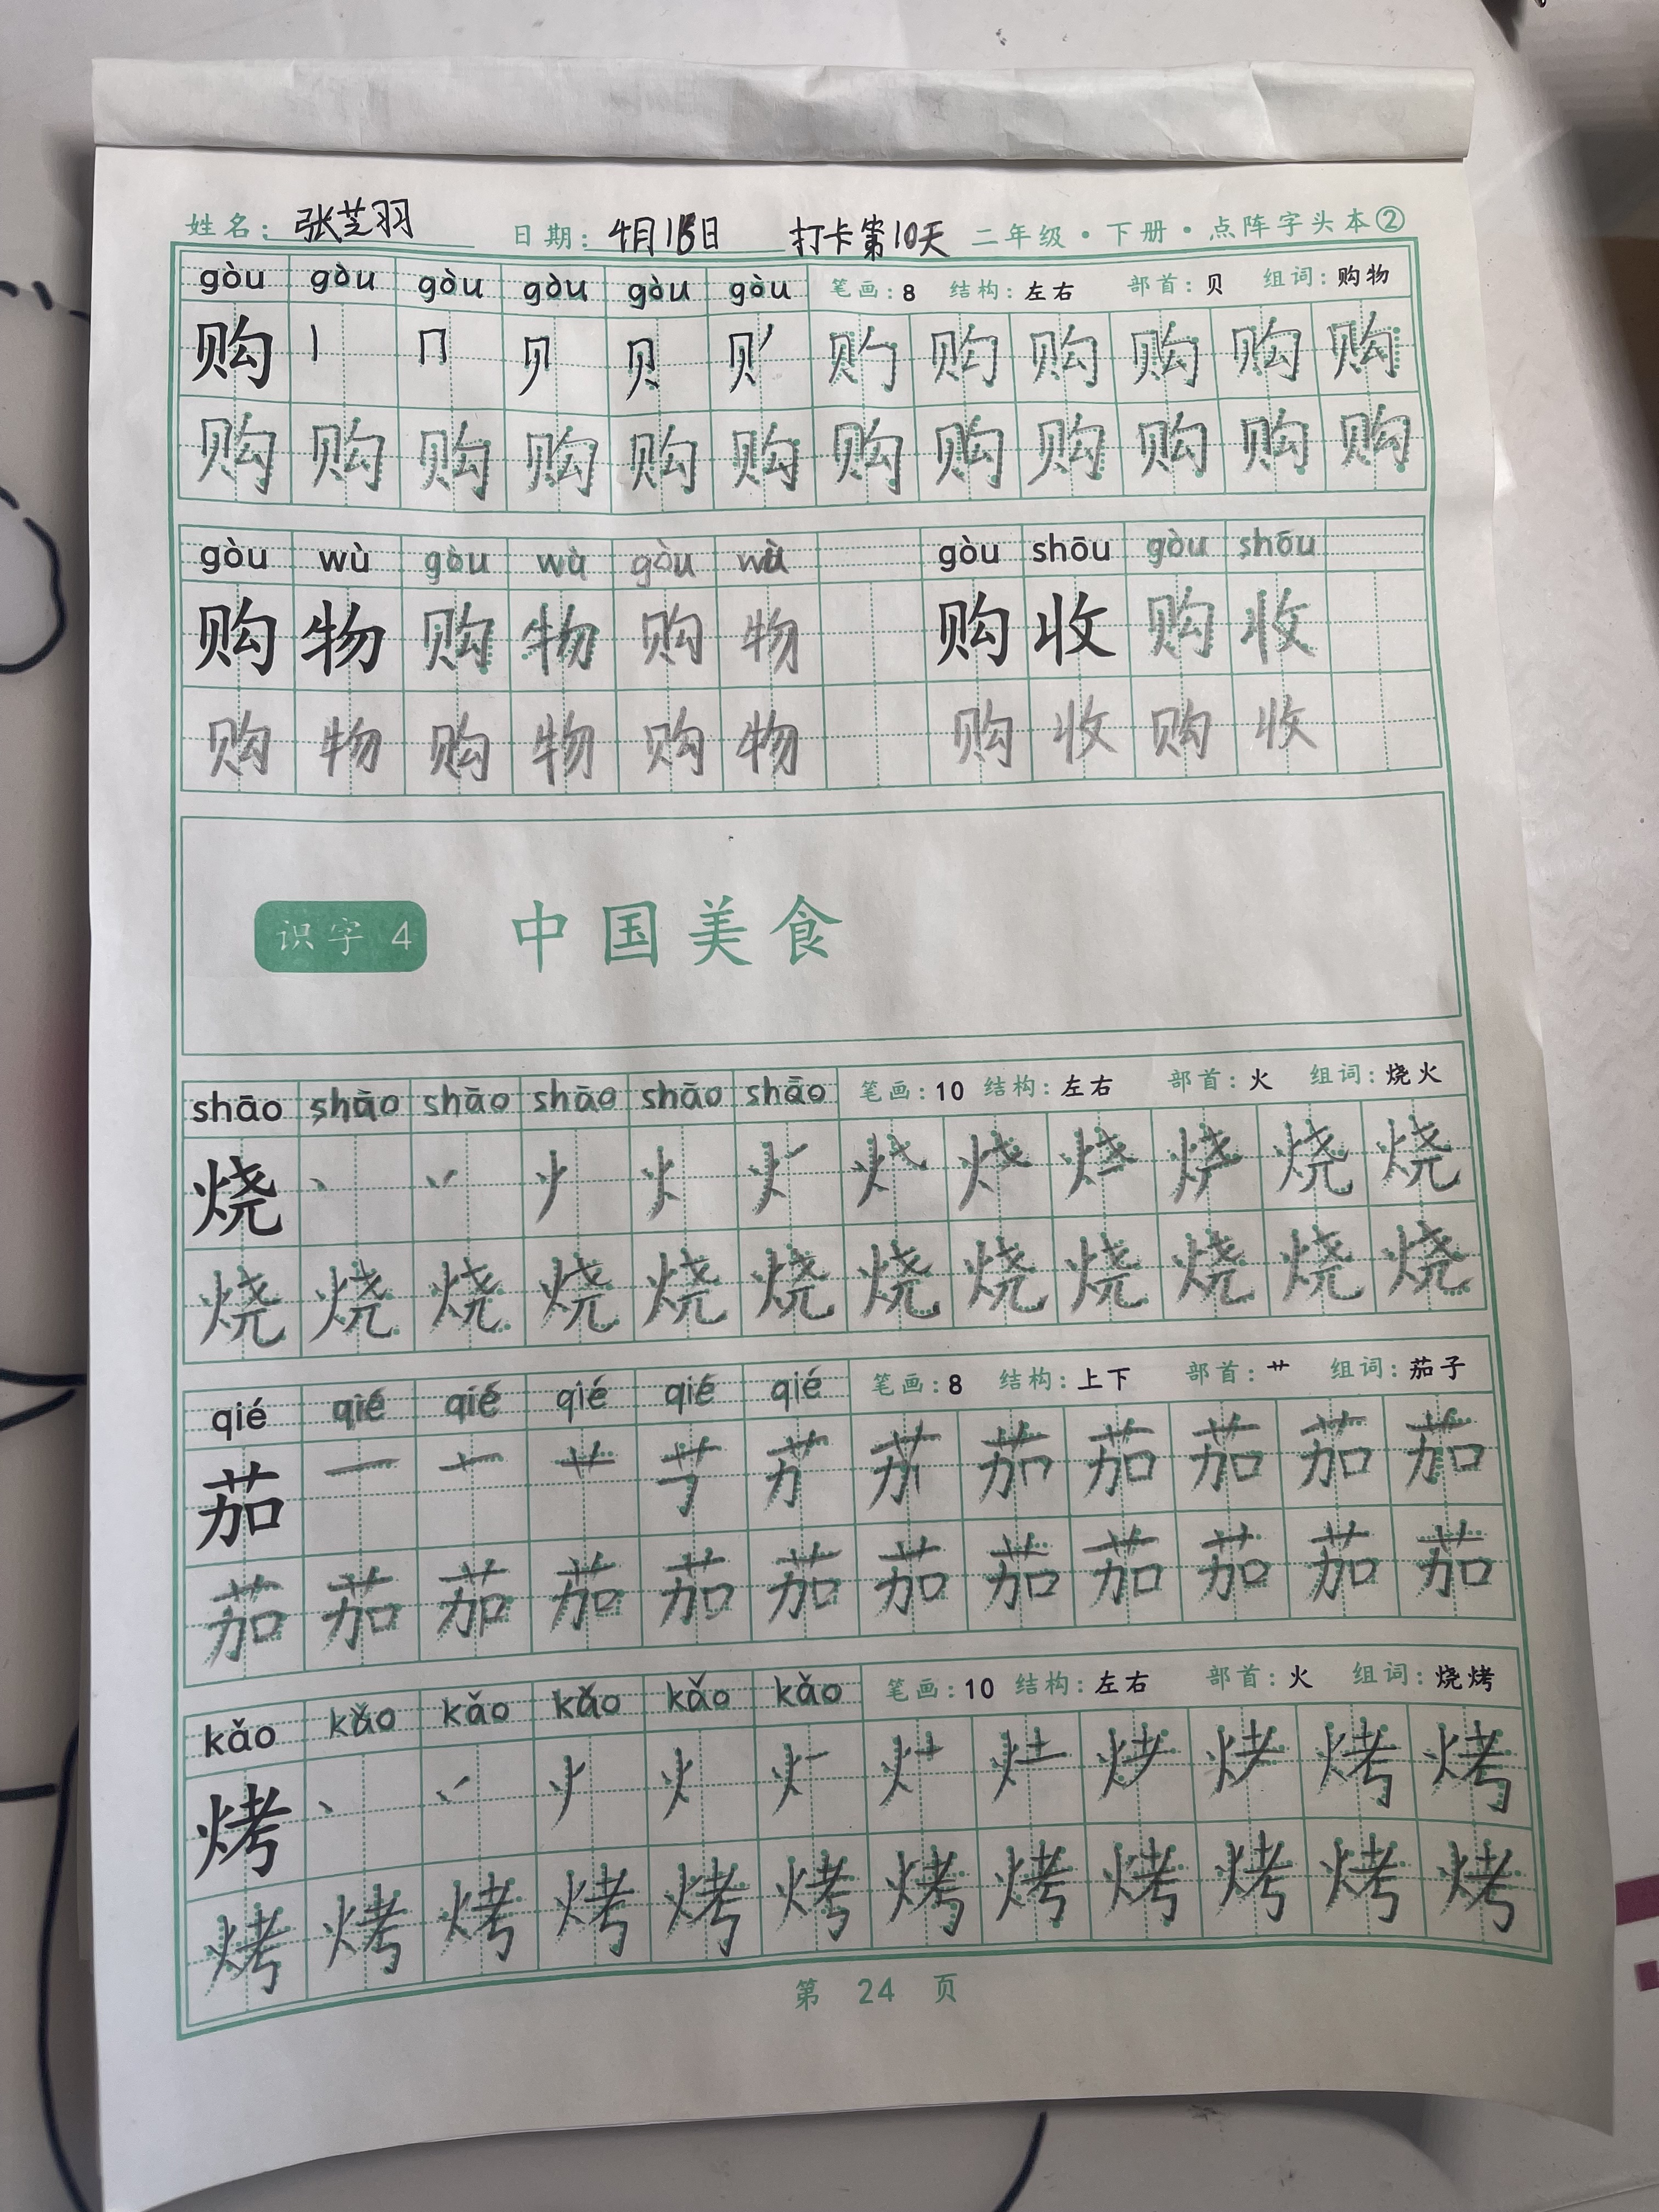 姓名：张芝羽 日期：4月15日 打卡第10天 二年级·下册·点阵字头本②
gòu gòu gòu gòu gòu gòu 笔画：8 结构：左右 部首：贝 组词：购物
购 购 购 购 购 购
购 购 购 购 购 购 购 购 购 购 购 购
gòu wù gòu wù gòu wù gòu shōu gòu shōu
购 物 购 物 购 物 购 收 购 收
购 物 购 物 购 物 购 收 购 收
识字 4 中国美食
shāo shāo shāo shāo shāo shāo 笔画：10 结构：左右 部首：火 组词：烧火
烧 丶 火 烧 烧
烧 烧 烧 烧 烧 烧 烧 烧 烧 烧 烧 烧
qié qié qié qié qié qié 笔画：8 结构：上下 部首：艹 组词：茄子
茄 一 艹 茄 茄 茄 茄
茄 茄 茄 茄 茄 茄 茄 茄 茄 茄 茄 茄
kǎo kǎo kǎo kǎo kǎo kǎo 笔画：10 结构：左右 部首：火 组词：烧烤
烤 丶 火 灶 烤 烤
烤 烤 烤 烤 烤 烤 烤 烤 烤 烤 烤 烤
第 24 页